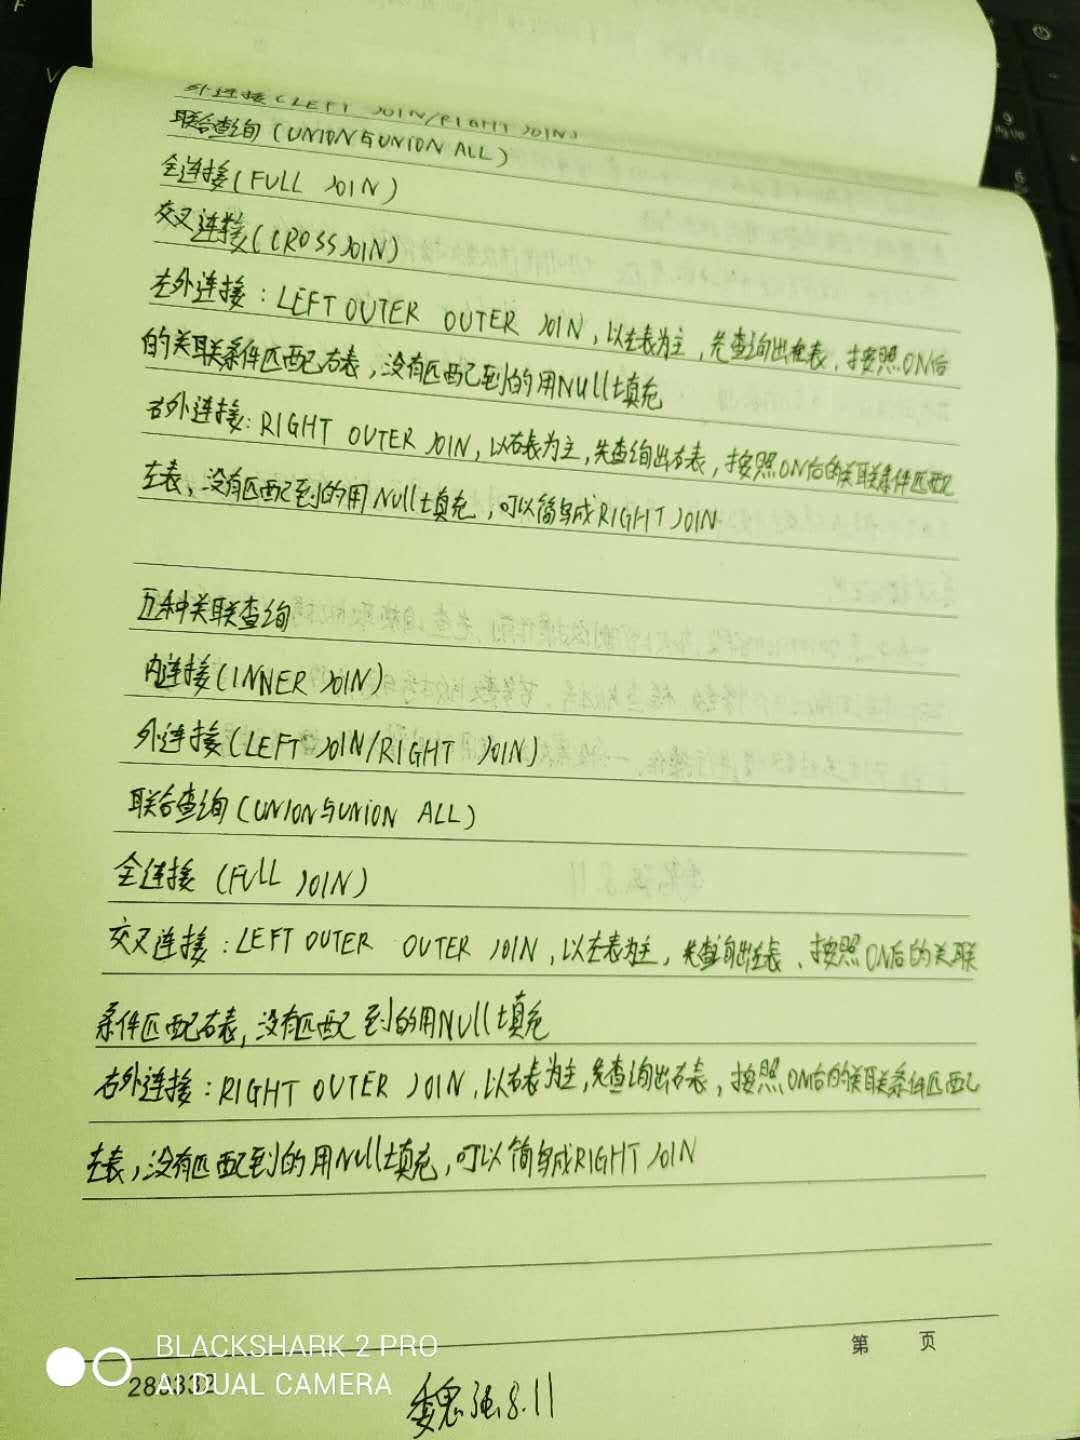 外连接(LEFT JOIN/RIGHT JOIN)
联合查询(UNION与UNION ALL)
全连接(FULL JOIN)
交叉连接(CROSS JOIN)
左外连接:LEFT OUTER OUTER JOIN,以左表为主,先查询出左表,按照ON后
的关联条件匹配右表,没有匹配到的用NUll填充
右外连接:RIGHT OUTER JOIN,以右表为主,先查询出右表,按照ON后的关联条件匹配
左表,没有匹配到的用NUll填充,可以简写成RIGHT JOIN
五种关联查询
内连接(INNER JOIN)
外连接(LEFT JOIN/RIGHT JOIN)
联合查询(UNION与UNION ALL)
全连接(FULL JOIN)
交叉连接:LEFT OUTER OUTER JOIN,以左表为主,先查询出左表,按照ON后的关联
条件匹配右表,没有匹配到的用NUll填充
右外连接:RIGHT OUTER JOIN,以右表为主,先查询出右表,按照ON后的关联条件匹配
左表,没有匹配到的用NUll填充,可以简写成RIGHT JOIN
第 页
BLACKSHARK 2 PRO
AI DUAL CAMERA
魏强8.11